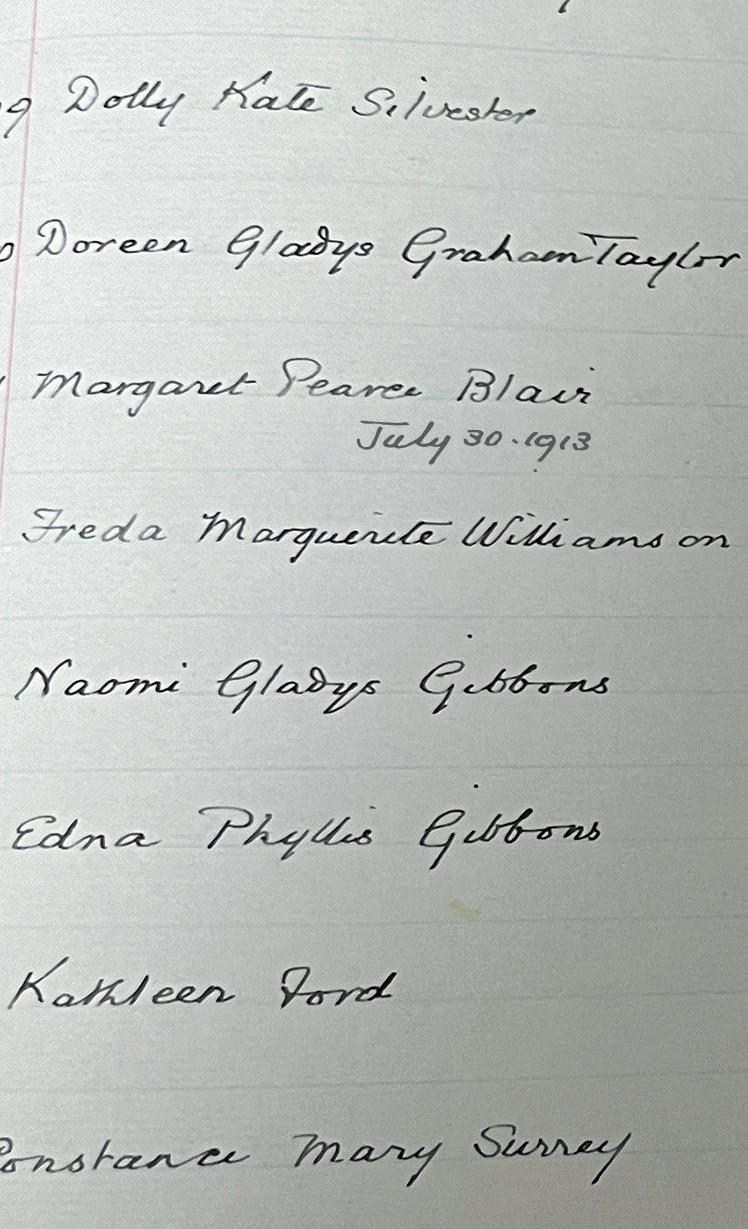 9 Dolly Kate Silvester
0 Doreen Gladys Graham Taylor
Margaret Pearce Blair
July 30.1913
Freda Marguerite Williamson
Naomi Gladys Gibbons
Edna Phyllis Gibbons
Kathleen Ford
Constance Mary Surrey